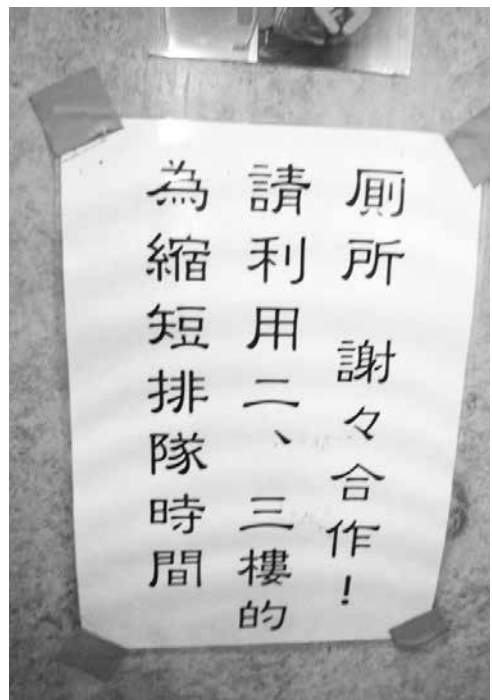 為縮短排隊時間
請利用二、三樓的
厠所 謝々合作!